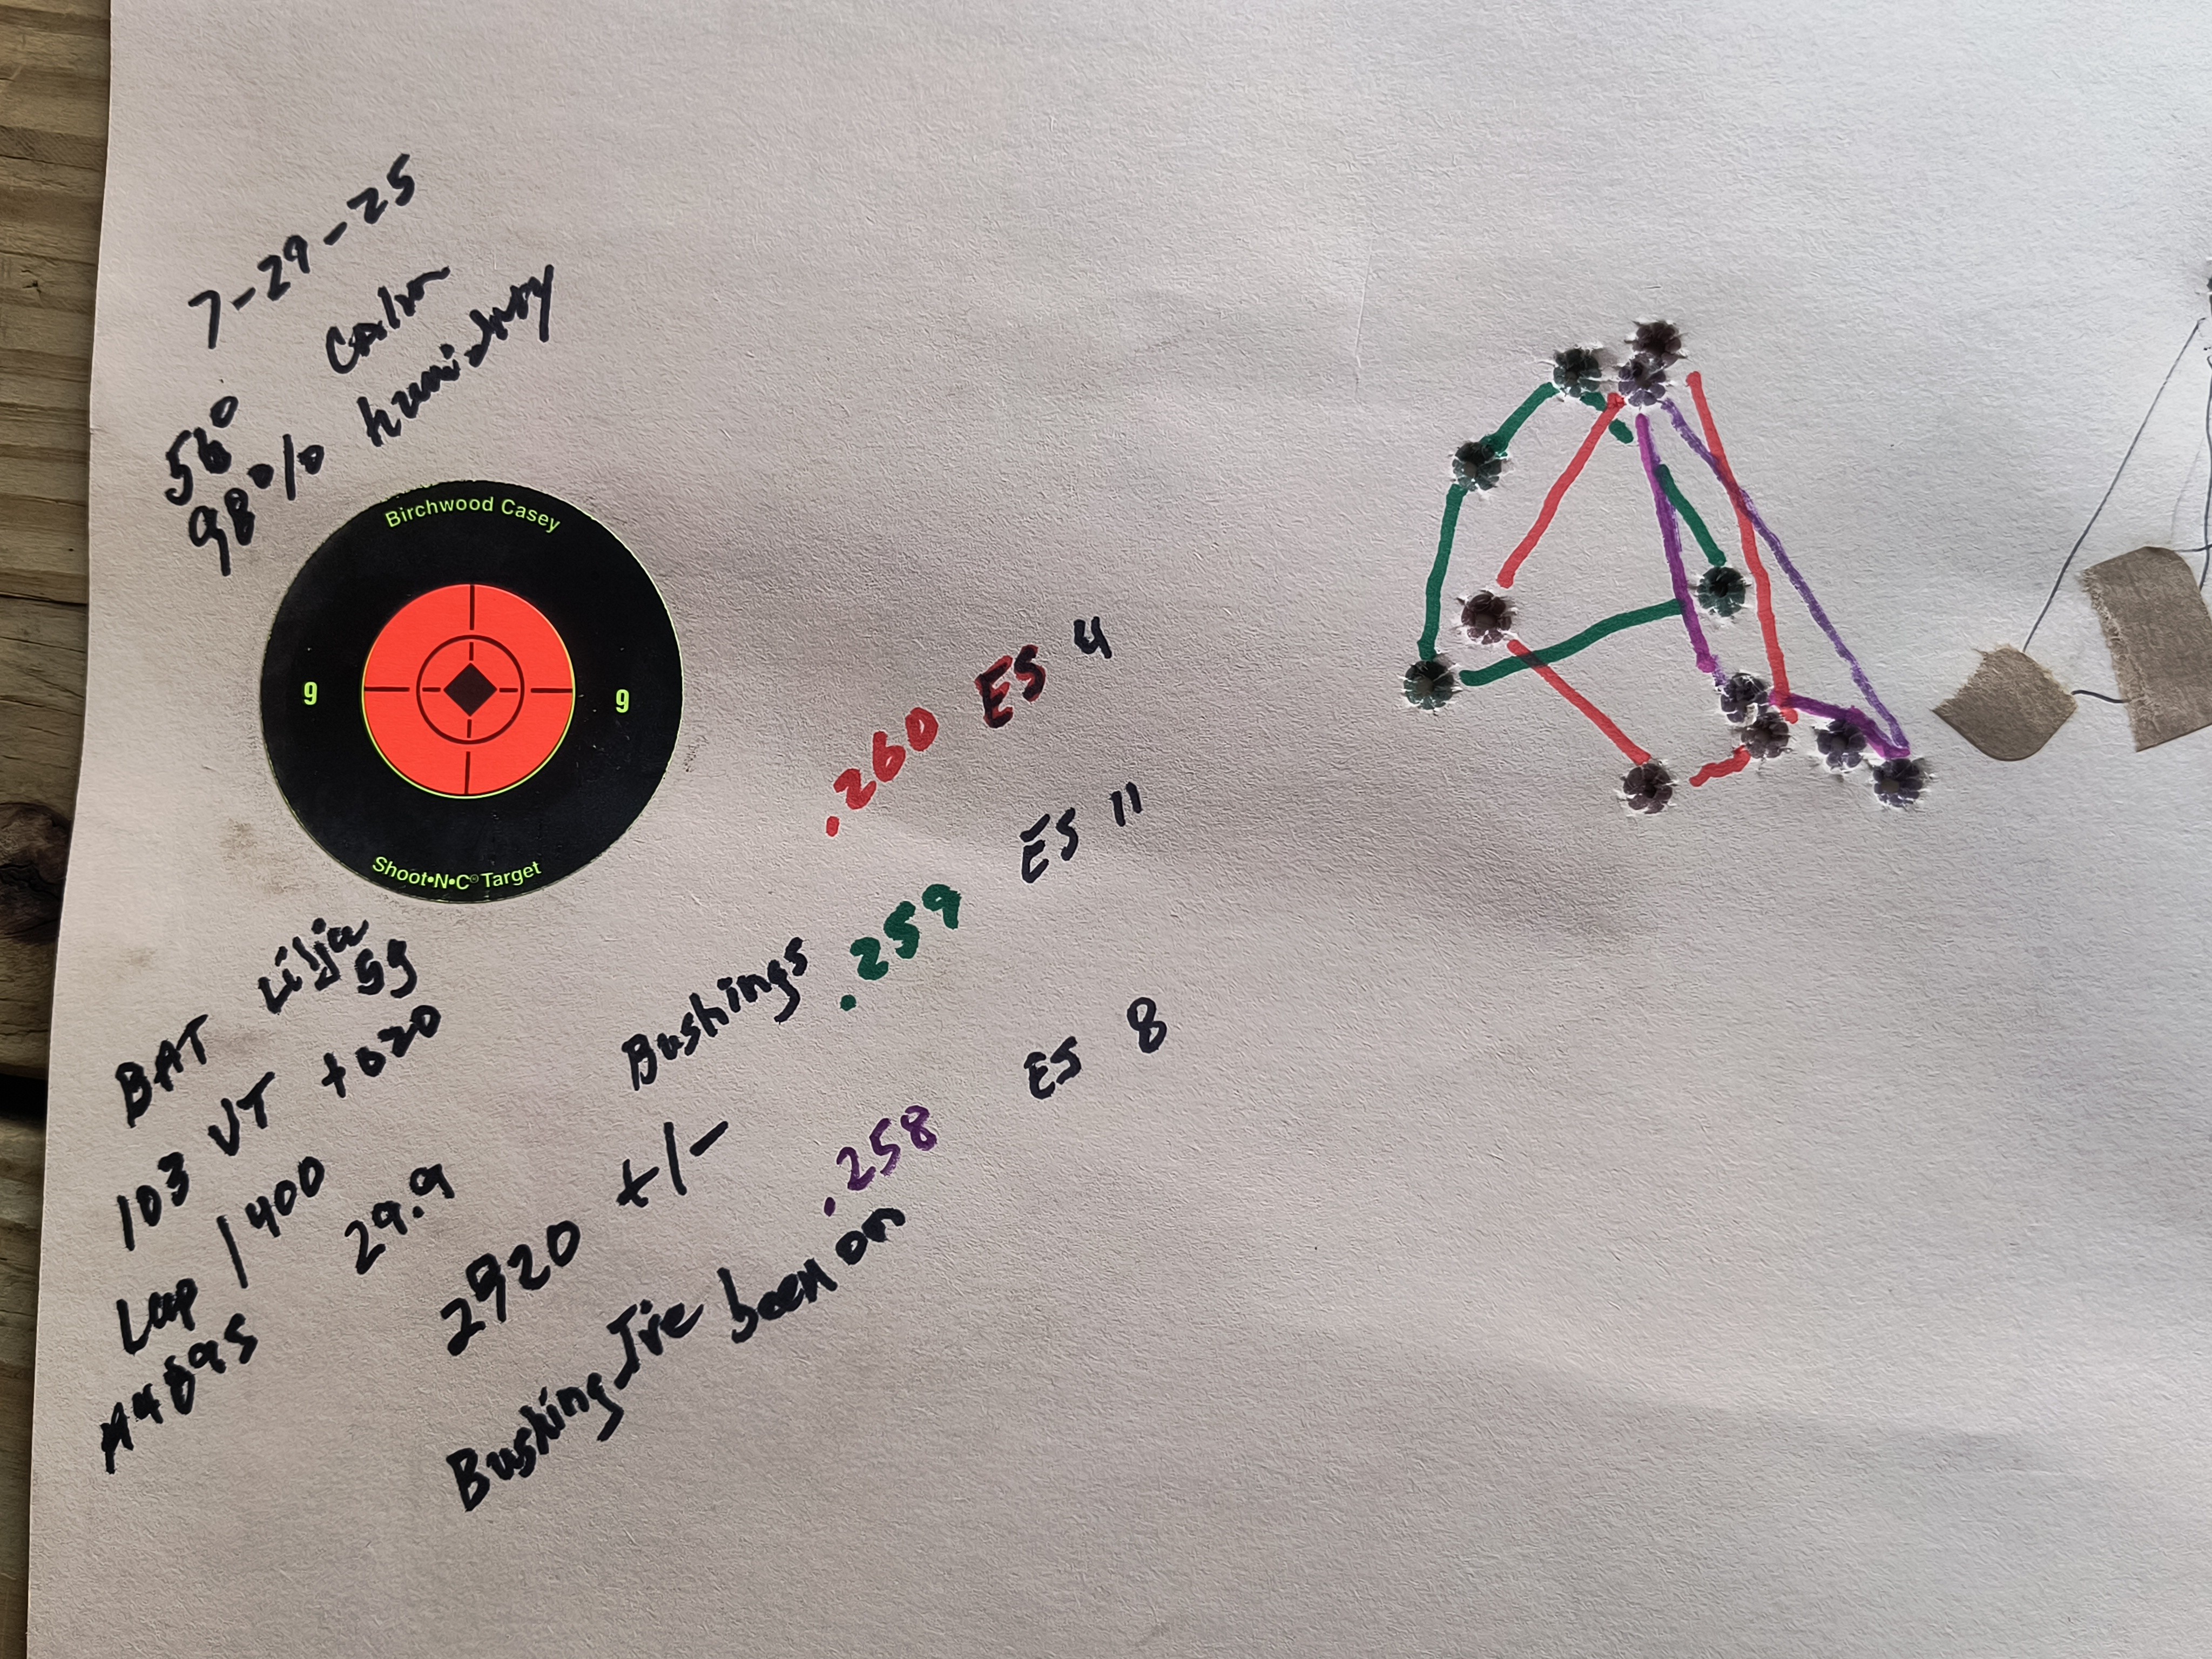 7-29-25
56° Calm
98% humidity
Birchwood Casey
9 9
Shoot•N•C® Target
BAT Lilja 5g
103 VT +020
Lap / 400
H4895 29.9
2920 +/-
Bushings
.260 ES 4
.259 ES 11
.258 ES 8
Bushing I've been on